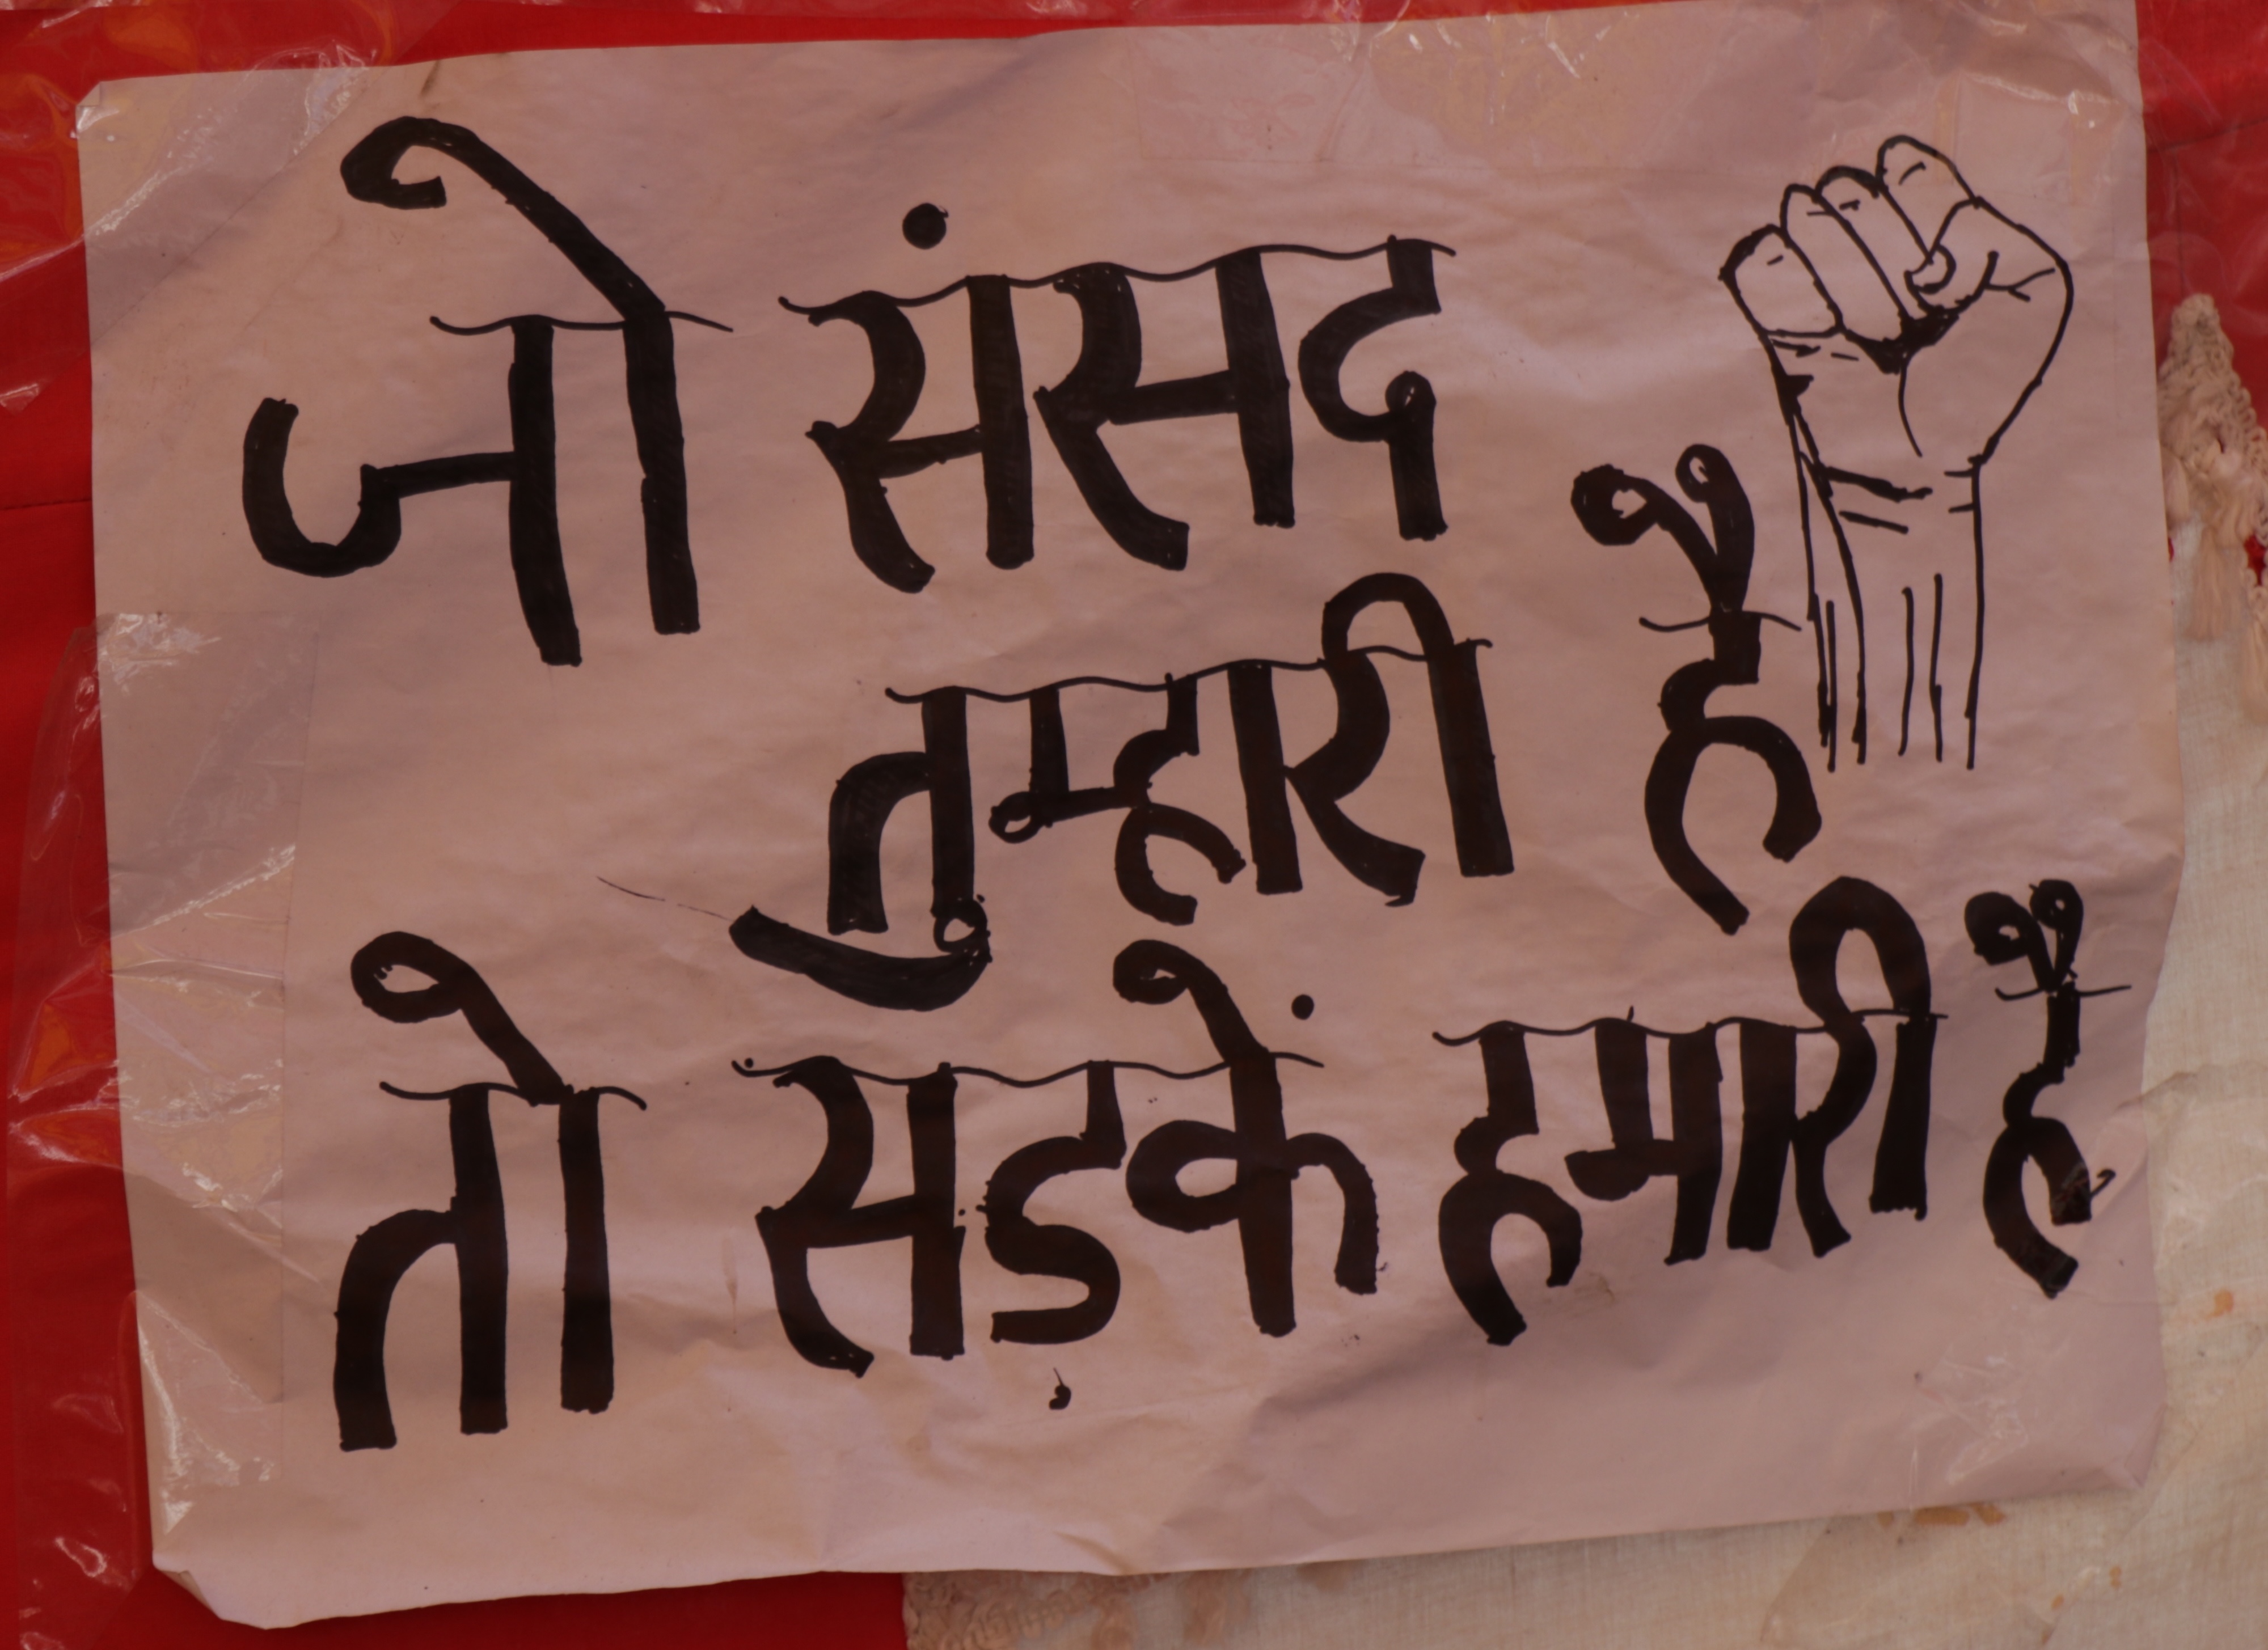 जो संसद
तुम्हारी है
तो सड़कें हमारी है